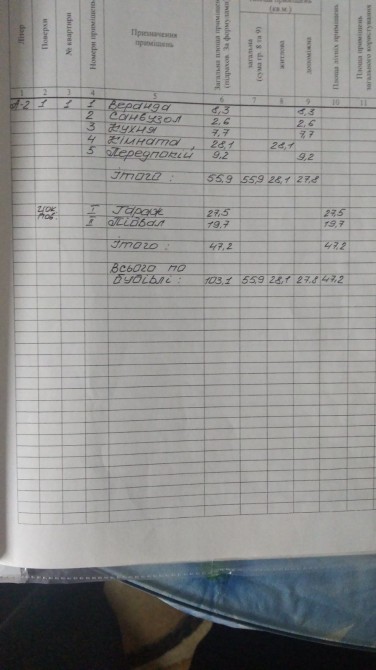 Літер
Поверхи
№ квартири
Номери приміщень
Призначення приміщень
Загальна площа приміщень
(підрахов. За формулами)
(кв м.)
загальна
(сума гр. 8 та 9)
житлова
допоміжна
Площа літніх приміщень
Площа приміщень
загального користування
1 2 3 4 5 6 7 8 9 10 11
А-2 1 1 1 Веранда 8,3 8,3
2 Санвузол 2,6 2,6
3 Кухня 7,7 7,7
4 Кімната 28,1 28,1
5 Передпокій 9,2 9,2
Ітого : 55,9 55,9 28,1 27,8
Цок. пов. I Гараж 27,5 27,5
II Підвал 19,7 19,7
Ітого : 47,2 47,2
Всього по
будівлі : 103,1 55,9 28,1 27,8 47,2